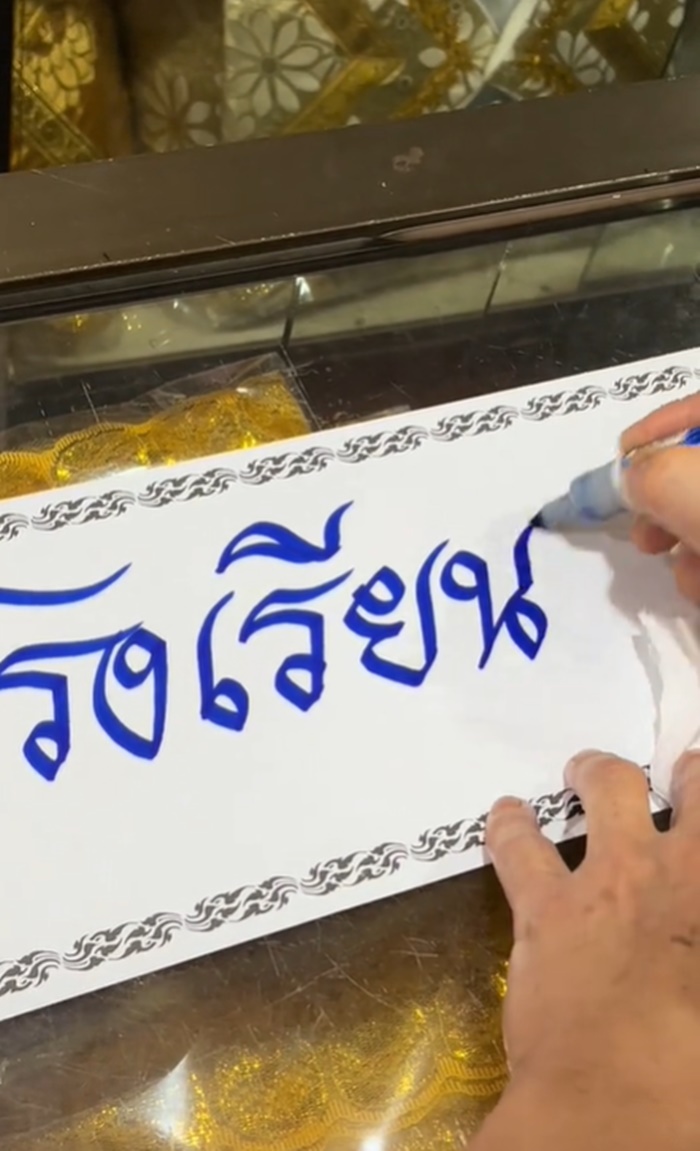 โรงเรียน